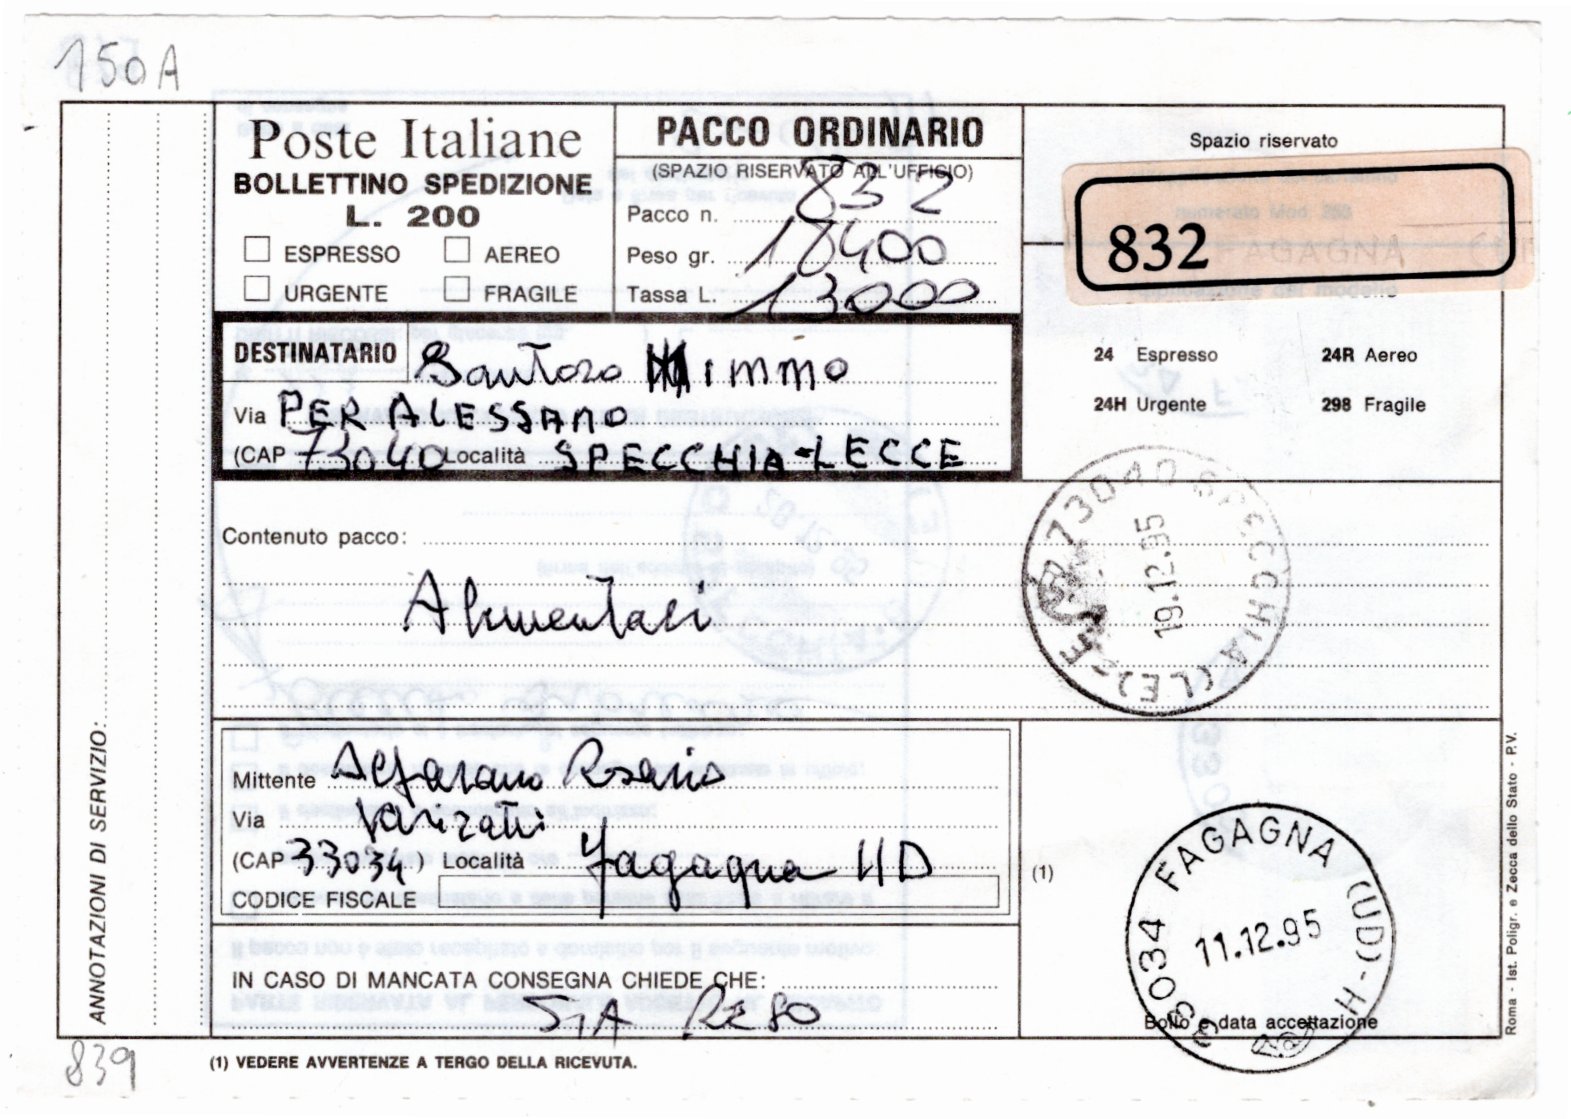 150A
Poste Italiane
BOLLETTINO SPEDIZIONE
L. 200
ESPRESSO AEREO
URGENTE FRAGILE
PACCO ORDINARIO
(SPAZIO RISERVATO ALL'UFFICIO)
Pacco n. 832
Peso gr. 18400
Tassa L. 13000
Spazio riservato
832
24 Espresso 24R Aereo
24H Urgente 298 Fragile
DESTINATARIO Santoro Mimmo
Via PER ALESSANO
(CAP 73040 Località SPECCHIA-LECCE
Contenuto pacco:
Alimentari
73040 SPECCHIA (LE)
19.12.95
Mittente Alfarano Rosario
Via
(CAP 33034) Località Fagagna UD
CODICE FISCALE
IN CASO DI MANCATA CONSEGNA CHIEDE CHE:
SIA RESO
(1)
33034 FAGAGNA (UD)
11.12.95
Bollo e data accettazione
ANNOTAZIONI DI SERVIZIO:
Roma - Ist. Poligr. e Zecca dello Stato - P.V.
839
(1) VEDERE AVVERTENZE A TERGO DELLA RICEVUTA.